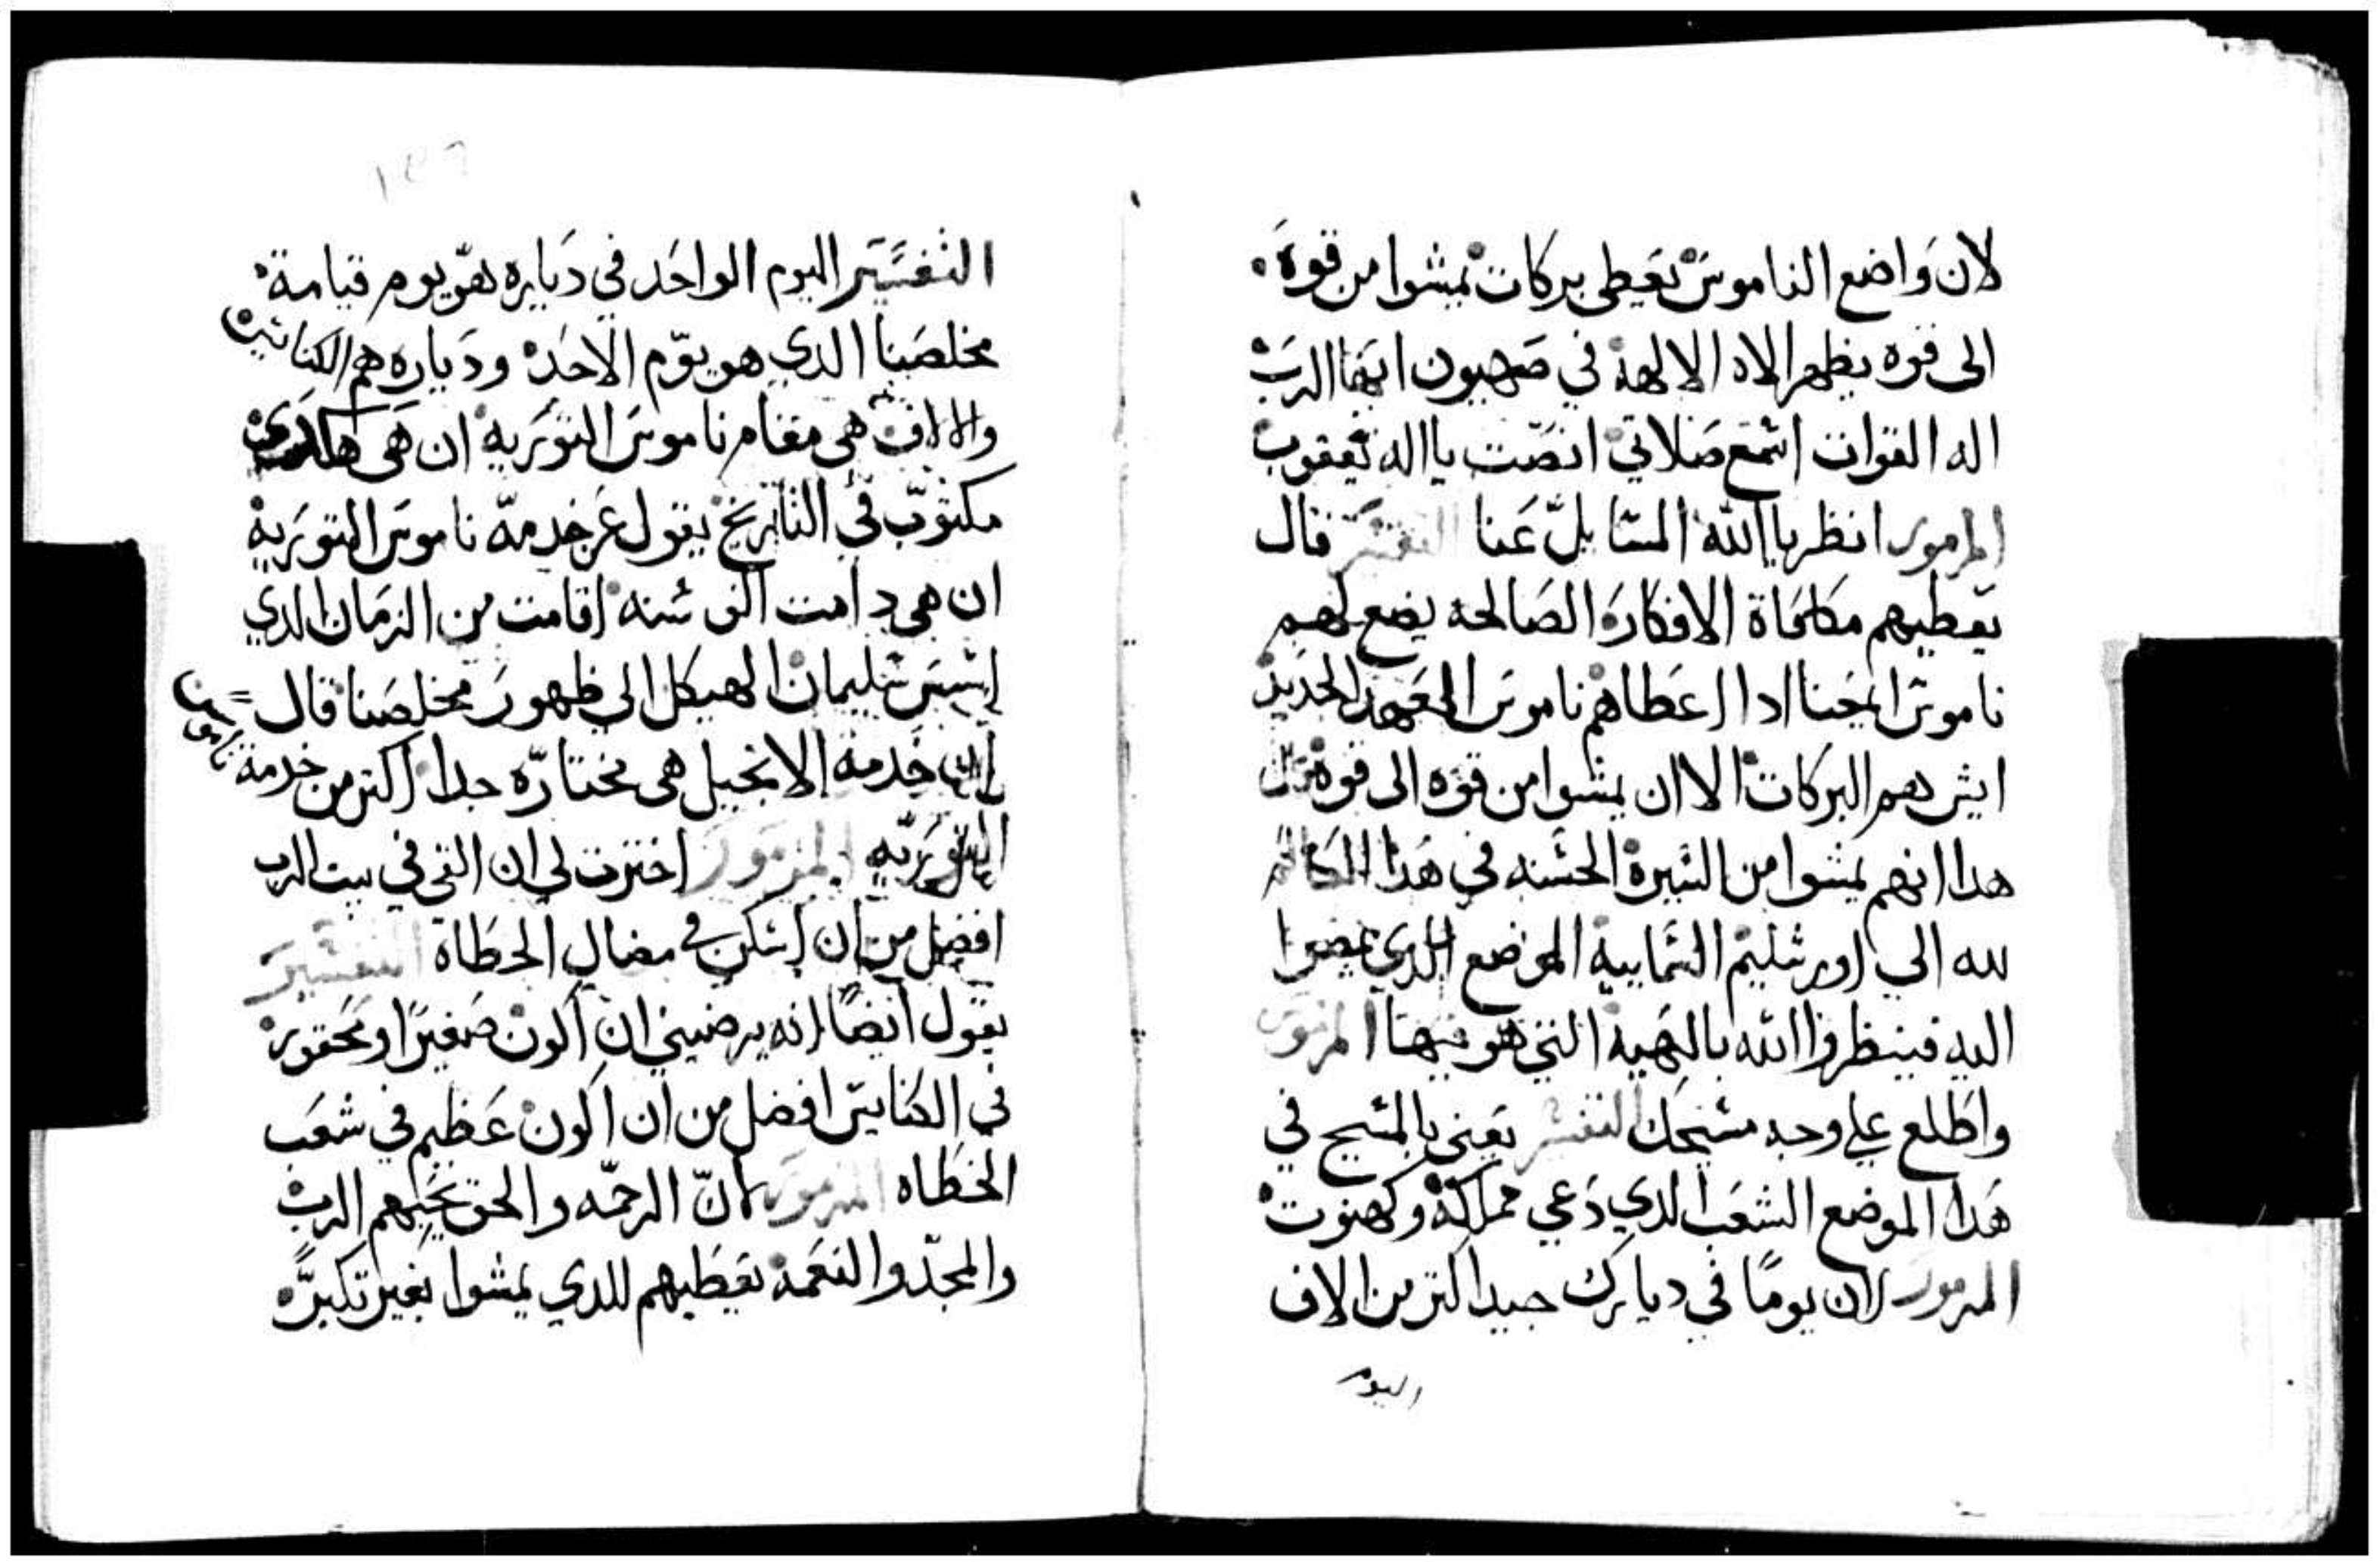 لان واضع الناموس يعطى بركات يمشوا من قوة
الى قوه يظهر الاه الالهة في صهيون ايها الرب
اله القوات اسمع صلاتي انصت يا اله يعقوب
المزمور انظر يا الله المقابل عنا التفسير قال
يعطيهم مكافاة الافكار الصالحه يضع لهم
ناموس ادا اعطاهم ناموس العهد الجديد
ايش هم البركات الا ان يمشوا من قوه الى قوه
هدا انهم يمشوا من السيرة الحسنه في هدا العالم
لله الي اورشليم السماييه الموضع الدي يمضوا
اليه فينظروا الله بالهية التي هو فيها المزمور
واطلع على وجه مسيحك التفسير يعني بالمسيح في
هدا الموضع الشعب الدي دعي مملكة وكهنوت
المزمور لان يومًا في ديارك جيد اكتر من الاف
اليوم
١٥٦
التفسير اليوم الواحد في دياره هو يوم قيامة
مخلصنا الدي هو يوم الاحد ودياره هم الكنايس
والالاف هى مقام ناموس التوريه ان هى هكدى
مكتوب في التاريخ يقول عن خدمة ناموس التوريه
ان هى دامت الف سنه اقامت من الزمان الدي
اسس سليمان الهيكل الي ظهور مخلصنا قال
ان خدمة الانجيل هى مختاره جدا اكتر من خدمة ناموس
التوريه المزمور اخترت لي ان القى في بيت الرب
افضل من ان اسكن في مضال الخطاة التفسير
يقول ايضًا انه يرضيني ان اكون صغيرًا ومحقور
في الكنايس افضل من ان اكون عظيم في شعب
الخطاه المزمور لان الرحمه والحق يحبهم الرب
والمجد والنعمه يعطيهم للدي يمشوا بغير تكبر